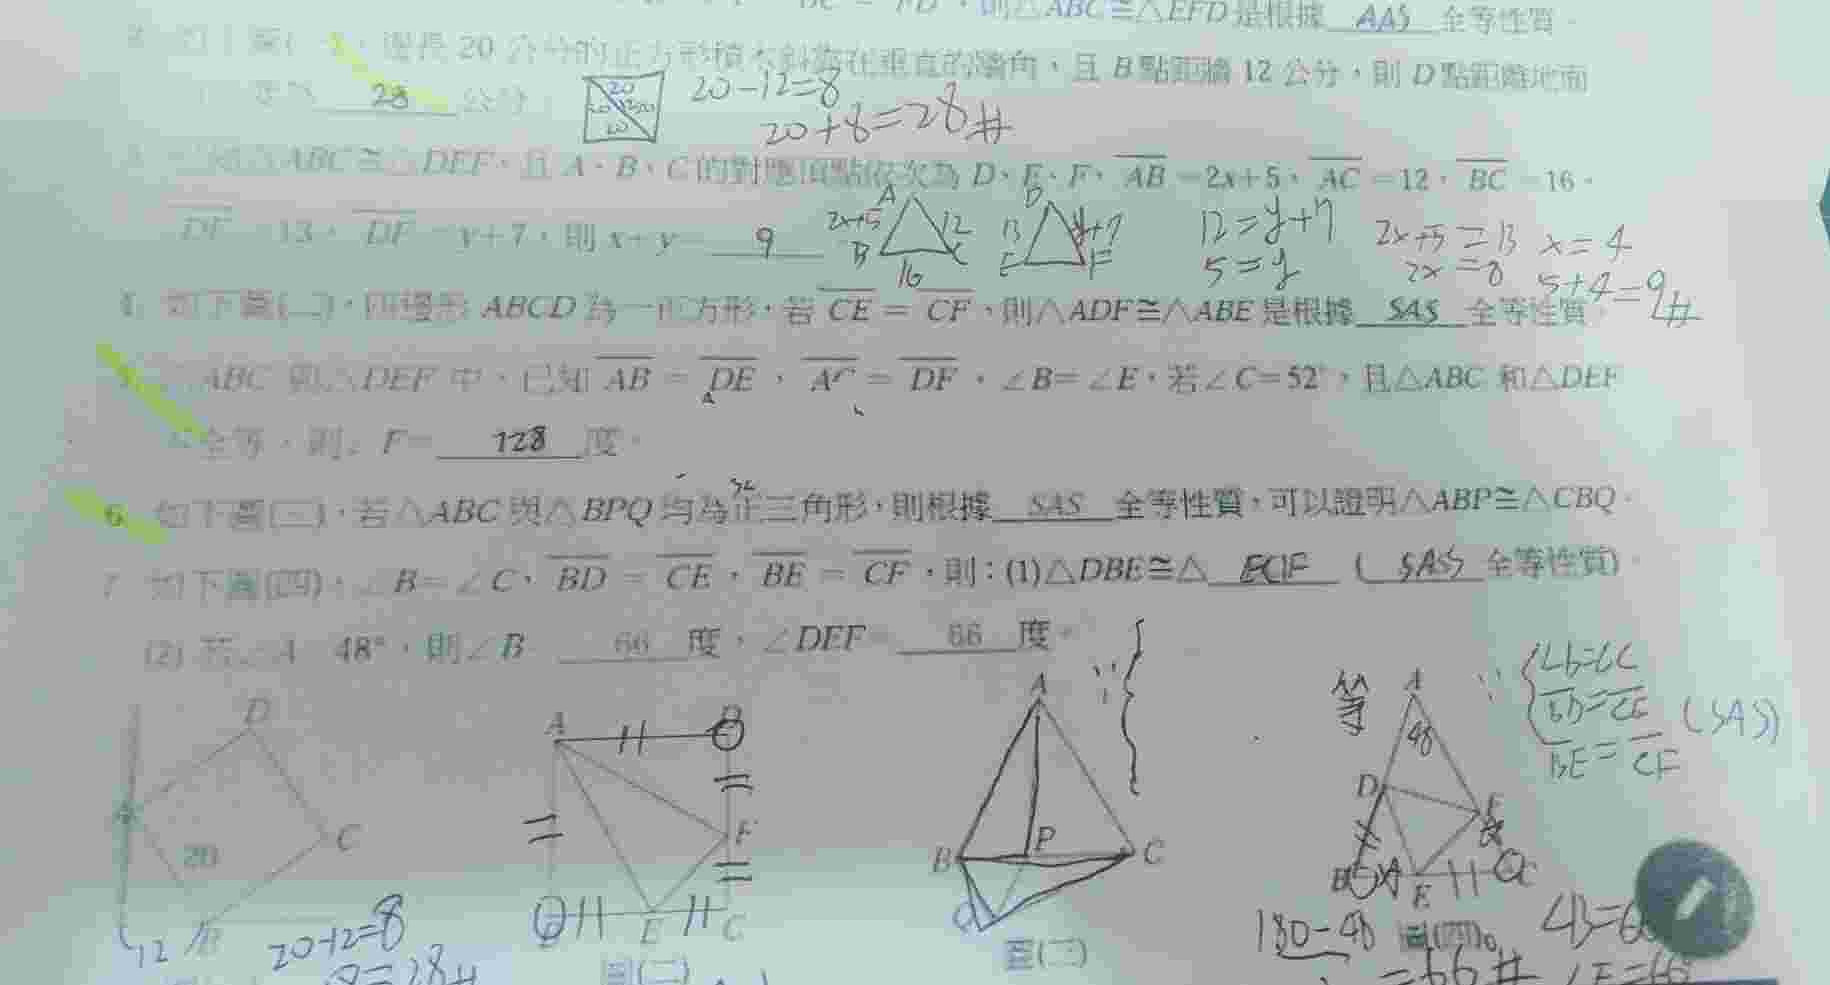 則△ABC≅△EFD是根據 AAS 全等性質。
邊長 20 公分的正方形積木斜靠在垂直的牆角,且 B 點距牆 12 公分,則 D 點距離地面
28 公分。
20
20 12 20
20
20-12=8
20+8=28#
△ABC≅△DEF,且 A、B、C 的對應頂點依次為 D、E、F,AB=2x+5,AC=12,BC=16,
13,DF=y+7,則 x+y= 9
A
2x+5
12
B
C
16
D
13
y+7
E
F
12=y+7
5=y
2x+5=13
2x=8
x=4
5+4=9#
4. 如下圖(二),四邊形 ABCD 為一正方形,若 CE=CF,則△ADF≅△ABE 是根據 SAS 全等性質。
ABC 與△DEF 中,已知 AB=DE,AC=DF,∠B=∠E,若∠C=52°,且△ABC 和△DEF
不全等,則∠F= 128 度。
6. 如下圖(三),若△ABC 與△BPQ 均為正三角形,則根據 SAS 全等性質,可以證明△ABP≅△CBQ。
7. 如下圖(四),∠B=∠C,BD=CE,BE=CF,則:(1)△DBE≅△ ECF ( SAS 全等性質)。
(2) 若∠A=48°,則∠B= 66 度,∠DEF= 66 度。
D
A
C
20
B
12
20-12=8
8=28#
A
D
F
E
C
圖(二)
A
B
P
C
圖(三)
等
A
48
D
F
B
E
C
圖(四)
∵ ∠B=∠C
BD=CE
BE=CF
(SAS)
180-48
=66#